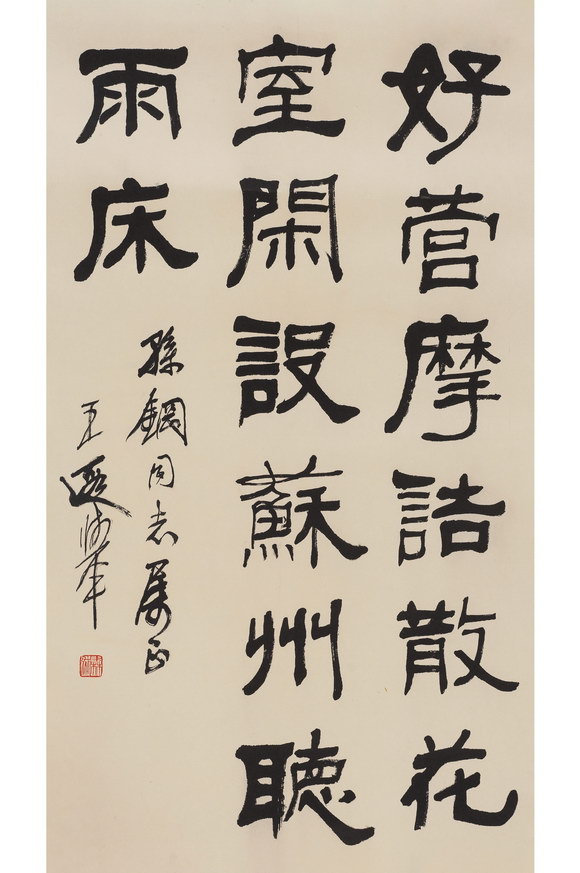 好营摩詰散花
室閑設蘇州聽
雨床
孫鋼同志属正
王遐舉